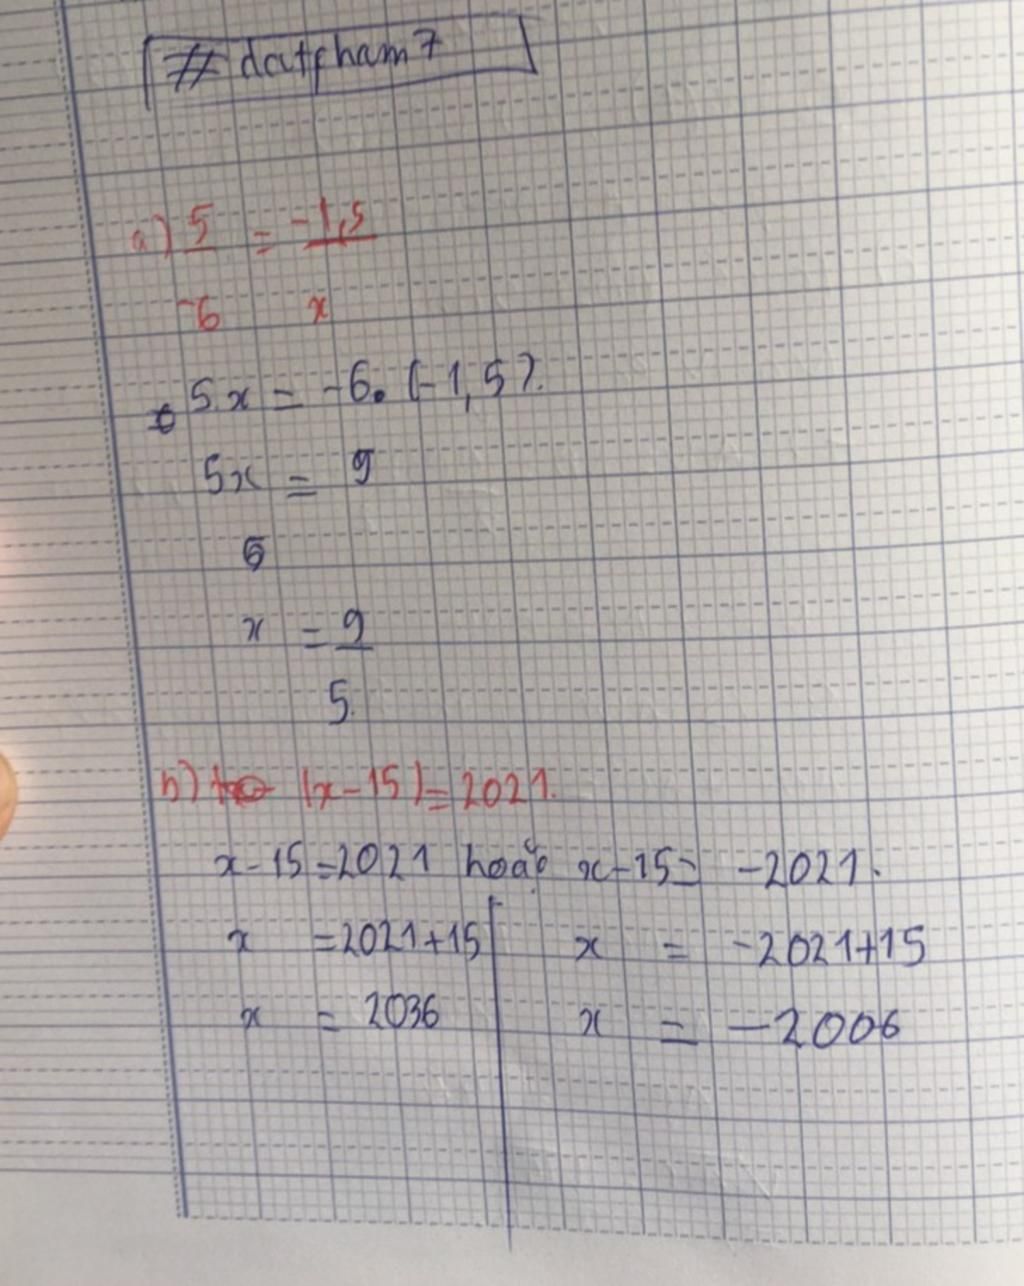 # datpham7
a) 5/-6 = -1,5/x
5.x = -6.(-1,5).
5x = 9
x = 9/5.
b) |x-15|=2021.
x-15=2021 hoặc x-15= -2021.
x =2021+15 | x = -2021+15
x = 2036 | x = -2006